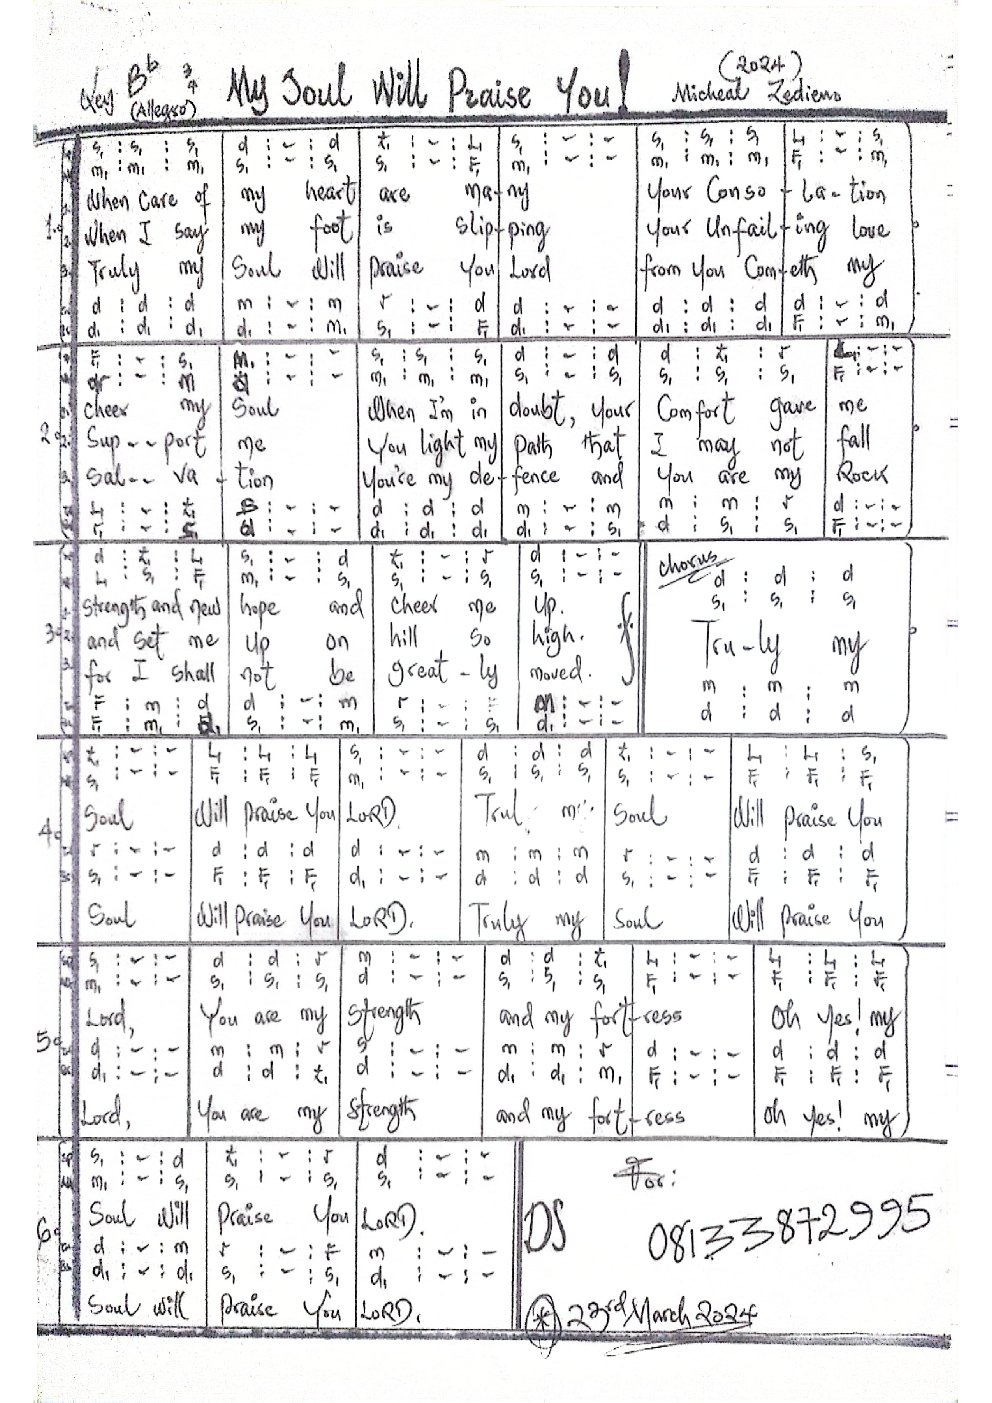 Key Bb 3/4 (Allegro) My Soul Will Praise You! (2024) Micheal Zediens
s, : s, : s, | d : - : d | t, : - : L, | s, : - : - | s, : s, : s, | L, : - : s,
m, : m, : m, | s, : - : s, | s, : - : F, | m, : - : - | m, : m, : m, | F, : - : m,
When care of my heart are ma-ny your Conso-la-tion
1. When I say my foot is slip-ping your Unfail-ing love
Truly my Soul Will praise you Lord from you Cometh my
d : d : d | m : - : m | r : - : d | d : - : - | d : d : d | d : - : d
d, : d, : d, | d, : - : m, | s, : - : F, | d, : - : - | d, : d, : d, | F, : - : m,
F, : - : s, | m, : - : - | s, : s, : s, | d : - : d | d : t, : r | L, : - : -
d : - : m | d : - : - | m, : m, : m, | s, : - : s, | s, : s, : s, | F, : - : -
cheer my Soul When I'm in doubt, your Comfort gave me
2. Sup--port me You light my path that I may not fall
Sal-- va-tion You're my de-fence and you are my Rock
L, : - : t, | s, : - : - | d : d : d | m : - : m | m : m : r | d : - : -
F, : - : s, | d : - : - | d, : d, : d, | d, : - : s, | d : s, : s, | F, : - : -
d : t, : L, | s, : - : d | t, : - : r | d : - : - chorus
L, : s, : F, | m, : - : s, | s, : - : s, | s, : - : - | d : d : d
s, : s, : s,
strength and new hope and cheer me up.
3. and set me up on hill so high. Tru-ly my
for I shall not be great-ly moved.
F, : m : d | d : - : m | r : - : F | m : - : - | m : m : m
F, : m, : d, | s, : - : m, | s, : - : s, | d, : - : - | d : d : d
t, : - : - | L, : L, : L, | s, : - : - | d : d : d | t, : - : - | L, : L, : s,
s, : - : - | F, : F, : F, | m, : - : - | s, : s, : s, | s, : - : - | F, : F, : F,
4. Soul Will praise You LORD. Soul Will praise You
r : - : - | d : d : d | d : - : - | m : m : m | r : - : - | d : d : d
s, : - : - | F, : F, : F, | d, : - : - | d : d : d | s, : - : - | F, : F, : F,
Soul Will praise You LORD. Truly my Soul Will praise You
s, : - : - | d : d : r | m : - : - | d : d : t, | L, : - : - | L, : L, : L,
m, : - : - | s, : s, : s, | d : - : - | s, : s, : s, | F, : - : - | F, : F, : F,
Lord, You are my strength and my fort-ress Oh yes! my
5. d : - : - | m : m : r | s : - : - | m : m : r | d : - : - | d : d : d
d, : - : - | d : d : t, | d : - : - | d, : d, : m, | F, : - : - | F, : F, : F,
Lord, You are my strength and my fort-ress Oh yes! my
s, : - : d | t, : - : r | d : - : - For:
m, : - : s, | s, : - : s, | s, : - : -
6. Soul Will praise You LORD. DS 08133872995
d : - : m | r : - : F | m : - : -
d, : - : d, | s, : - : s, | d, : - : -
Soul will praise You LORD. * 23rd March 2024